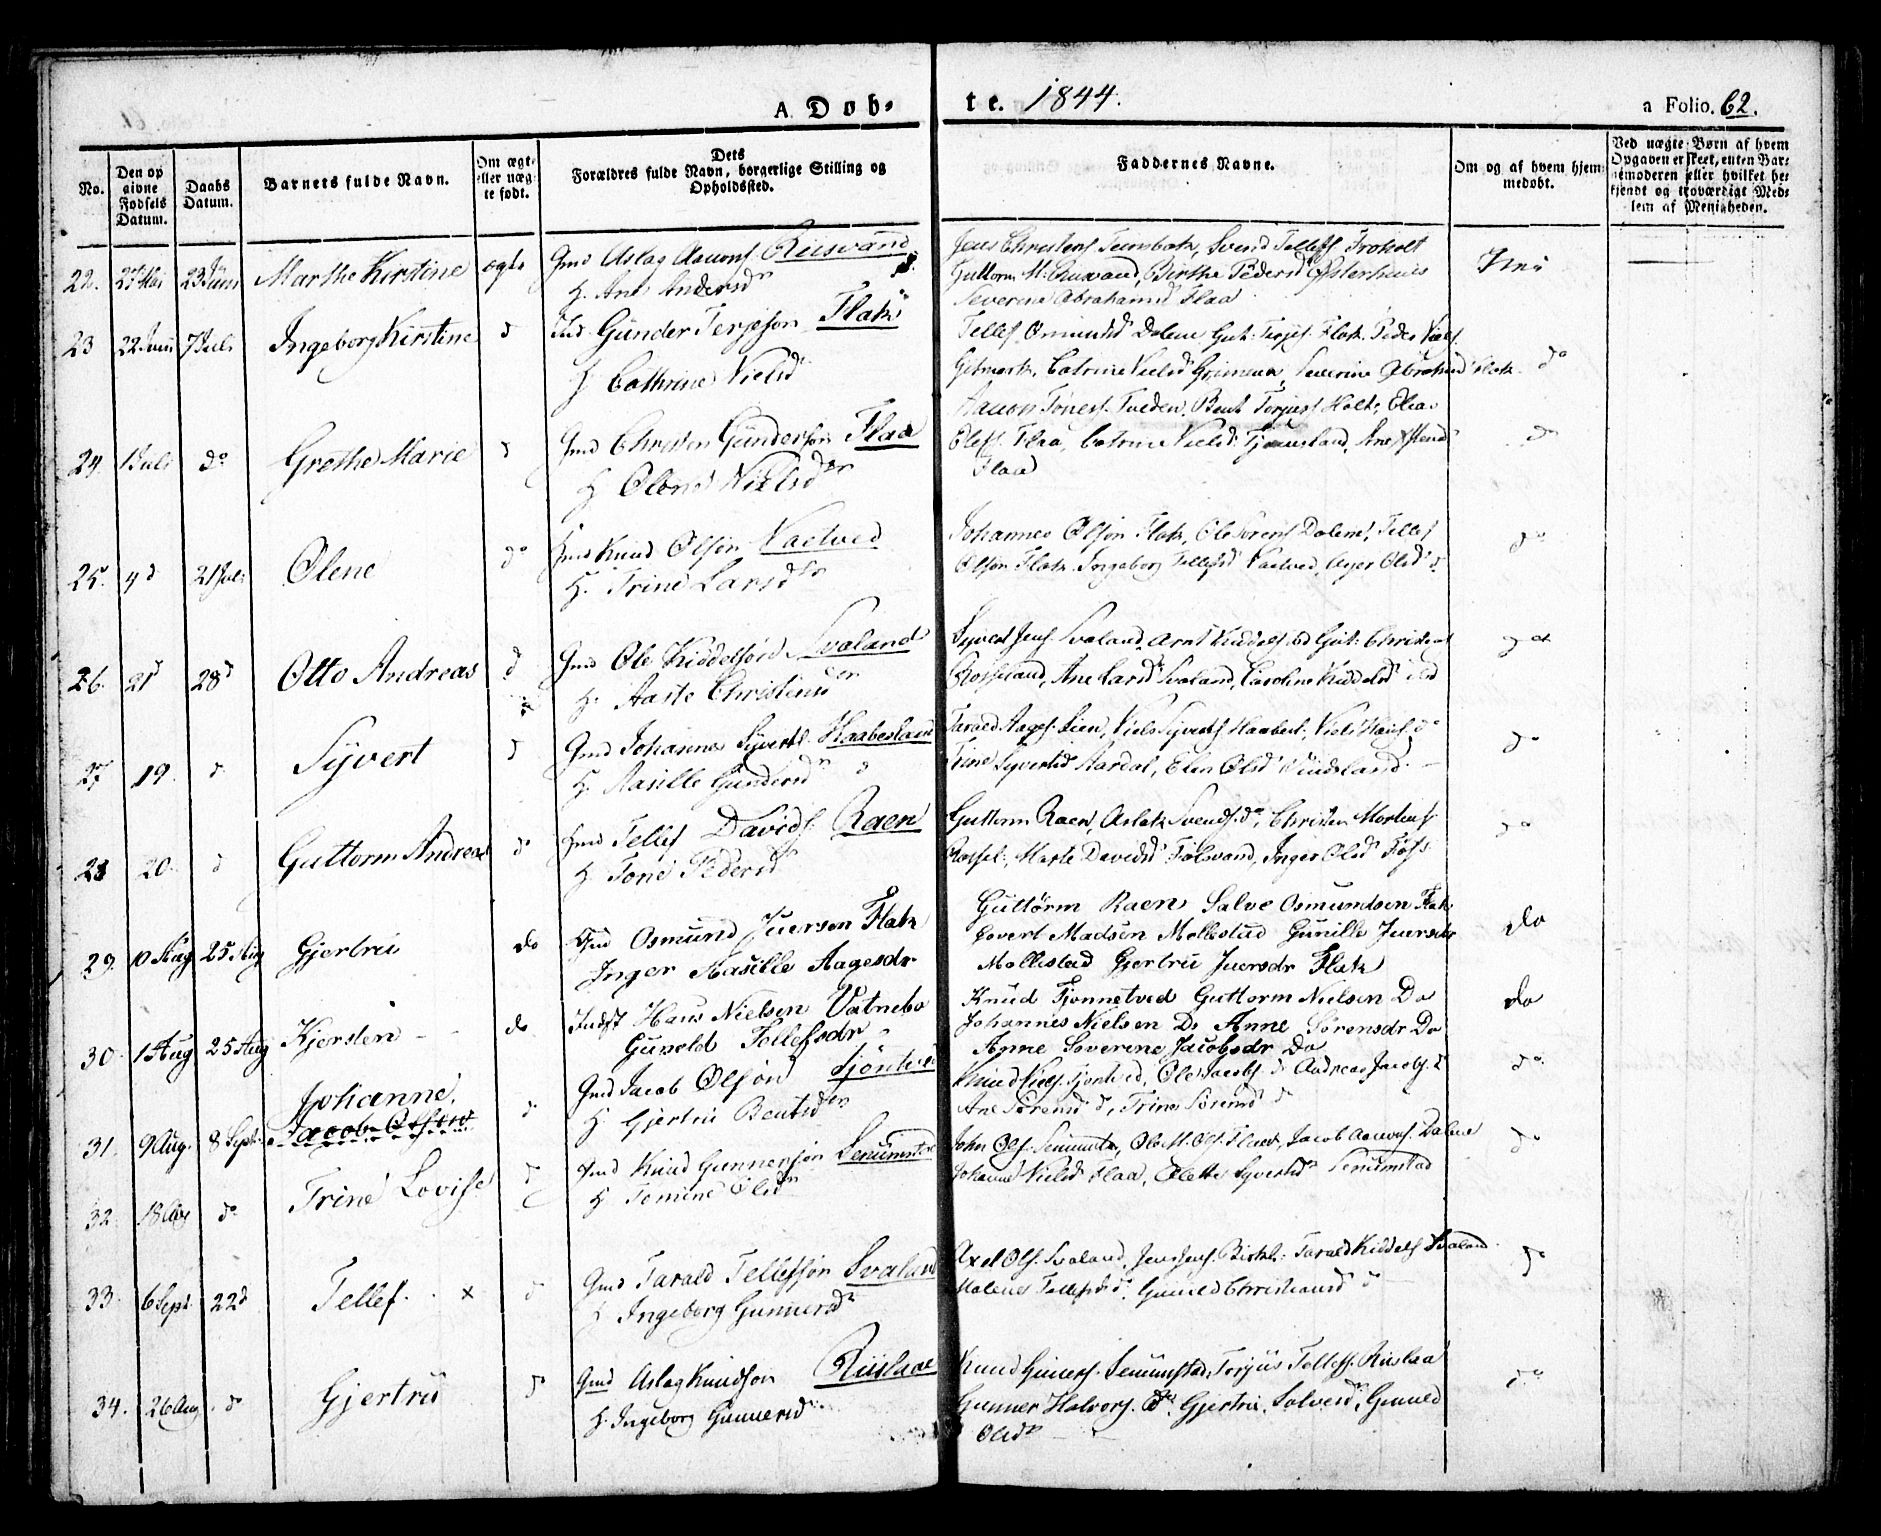 A. Døb-
te. 1844.
a Folio. 62.
No.
Den op
givne
Fødsels
Datum.
Daabs
Datum.
Barnets fulde Navn.
Om ægte
eller uæg-
te født.
Dets
Forældres fulde Navn, borgerlige Stilling og
Opholdsted.
Faddernes Navne.
Om og af hvem hjem-
medøbt.
Ved uægte Børn af hvem
Opgaven er skeet, enten Bar-
nemoderen eller hvilket be-
kjendt og troværdigt Med-
lem af Menigheden.
22. 27 Mai 23 Juni Marthe Kirstine ægte Gmd Aslag Aanons. Riisvand
H. Ane Andersdr
Guttorm M. Birthe Pedersd Østenhuus
Severine Abrahamsd Flaa
23 22 Juni 7 Juli Ingeborg Kirstine d Gunder Terjeson Flak
H Cathrine Nielsd
Tellef Osmunds Dalene Gut. Terjes. Flak Peder Niels.
Gitmark, Catrine Nielsd Grimevn, Severine Abrahamsd Flak do
24. 1 Juli do Grethe Marie d Gmd Christen Gunderson Flaa
H Olene Nielsdr
Aanon Tønes. Tveden, Bent Terjus Holt, Elia
Oles. Flaa, Catrine Nielsd Tjømsland, Ane
Flaa
25. 4 d 21 Juli Olene do Gmd Knud Olson Vaetved
H. Trine Larsdr
Johannes Olson Flak, Ole Sørens Dalene, Tellef
Olson Flak Ingeborg Tellefsd Vaetved, Olsd d do
26. 21 d 28 d Otto Andreas d Gmd Ole Kiddelson Svaland
H. Aaste Christensdr
Syvert Jens. Svaland, Arnt Kiddels ibd Gut. Christens
Rosseland, Ane Larsd Svaland, Caroline Kiddelsd ibd
27 19. d Syvert d Gmd Johannes Syverts. Haabesland
H. Aasille Gundersd d
Tarald Aages. Lien, Niels Syverts Haabesl., Niels Hans. do
Trine Syvertsd Aardal, Elen Olsd Vindsland do
28 20. d Guttorm Andreas do Gmd Tellef Davids. Raen
H. Tone Pedersd
Guttorm Raen, Aslak Svends. do, Christen Mortens
Rossel., Marte Davidsd Følsvand, Inger Olsd Foss do
29. 10 Aug 25 Aug Gjertru do Gmd Osmund Juerson Flak
Inger Aasille Aagesdr
Guttorm Raen Salve Osmundsen Flak
Covert Madsen Mollestad Gunille Juersdr
Mollestad Gjertru Juersdr Flak do
30. 1 Aug 25 Aug Kjersten do Indst Hans Nielsen Vatnebo
Gunold Tollefsdr
Knud Tjonnetved Guttorm Nielsen Do
Johannes Nielsen Do Anne Sørensdr Do
Anne Soverene Jacobsdr Do do
31. 9 Aug. 8 Sept. Johanne.
Jacob Olson
d Gmd Jacob Olson Tjøntved
H Gjertru Bentsdr
Knud Niels Tjøntved, Ole Jacobs d Andreas Jacobs. d
Ane Sørensd d, Trine Sørensd d do
32. 18 Aug do Trine Lovise d Gmd Knud Gunnerson Senumstad
H Tomine Olsd
John Ols. Senumstad, Ols. Flaa, Jacob Aanons. Dalene
Johanne Nielsd Flaa, Olette Syvertsd Senumstad do
33. 6 Sept. 22 d Tellef. x d Gmd Tarald Tellefson Svaland
H Ingeborg Gunnersd
Axel Ols. Svaland, Jens Jens. Birkl. Tarald Kiddels Svaland
Malene Tellefsd d, Guneld Christiansd d do
34. 26 Aug. do Gjertru d Gmd Aslag Knudson Riislaae
H. Ingeborg Gunnersd
Knud Guners. Senumstad, Terjus Tellefs. Riislaa
Gunner Halvors. do Gjertru Salvesd, Guneld
Olsdr do